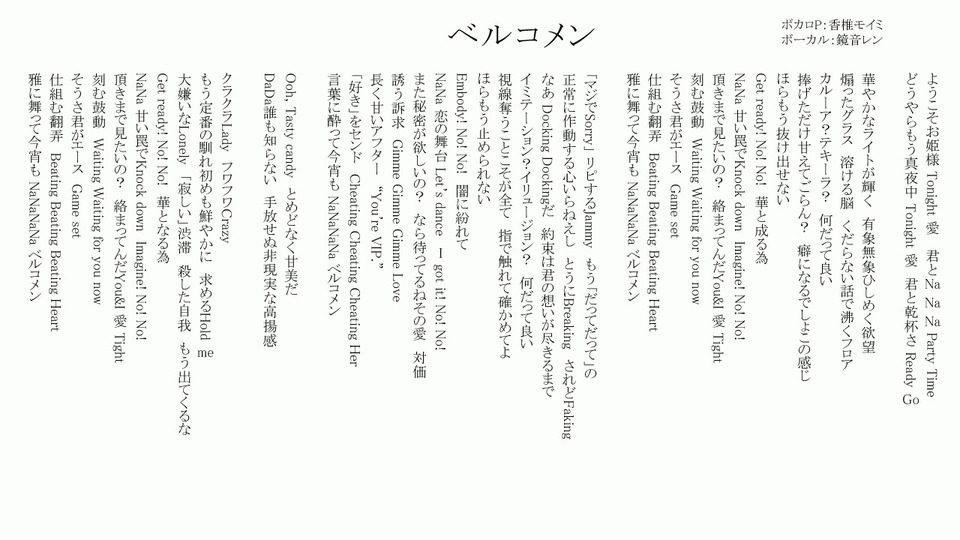 ベルコメン
ボカロP：香椎モイミ
ボーカル：鏡音レン
ようこそお姫様 Tonight 愛　君とNa Na Na Party Time
どうやらもう真夜中 Tonight 愛　君と乾杯さ Ready Go
華やかなライトが輝く　有象無象ひしめく欲望
煽ったグラス　溶ける脳　くだらない話で沸くフロア
カルーア？テキーラ？　何だって良い
捧げただけ甘えてごらん？　癖になるでしょこの感じ
ほらもう抜け出せない
Get ready! No! No!　華と成る為
NaNa 甘い罠でKnock down　Imagine! No! No!
頂きまで見たいの？　絡まってんだYou&I 愛 Tight
刻む鼓動　Waiting Waiting for you now
そうさ君がエース　Game set
仕組む翻弄　Beating Beating Beating Heart
雅に舞って今宵も NaNaNaNa ベルコメン
「マジでSorry」リピするJammy　もう「だってだって」の
正常に作動する心いらねえし　とうにBreaking　されどFaking
なあ Docking Dockingだ　約束は君の想いが尽きるまで
イミテーション？イリュージョン？　何だって良い
視線奪うことこそが全て　指で触れて確かめてよ
ほらもう止められない
Embody! No! No!　闇に紛れて
NaNa 恋の舞台 Let's dance　I got it! No! No!
また秘密が欲しいの？　なら待ってるねその愛　対価
誘う訴求　Gimme Gimme Gimme Love
長く甘いアフター　“You're VIP.”
「好き」をセンド　Cheating Cheating Cheating Her
言葉に酔って今宵も NaNaNaNa ベルコメン
Ooh, Tasty candy　とめどなく甘美だ
DaDa誰も知らない　手放せぬ非現実な高揚感
クラクラLady　フワフワCrazy
もう定番の馴れ初めも鮮やかに　求めるHold me
大嫌いなLonely　「寂しい」渋滞　殺した自我　もう出てくるな
Get ready! No! No!　華となる為
NaNa 甘い罠でKnock down　Imagine! No! No!
頂きまで見たいの？　絡まってんだYou&I 愛 Tight
刻む鼓動　Waiting Waiting for you now
そうさ君がエース　Game set
仕組む翻弄　Beating Beating Beating Heart
雅に舞って今宵も NaNaNaNa ベルコメン